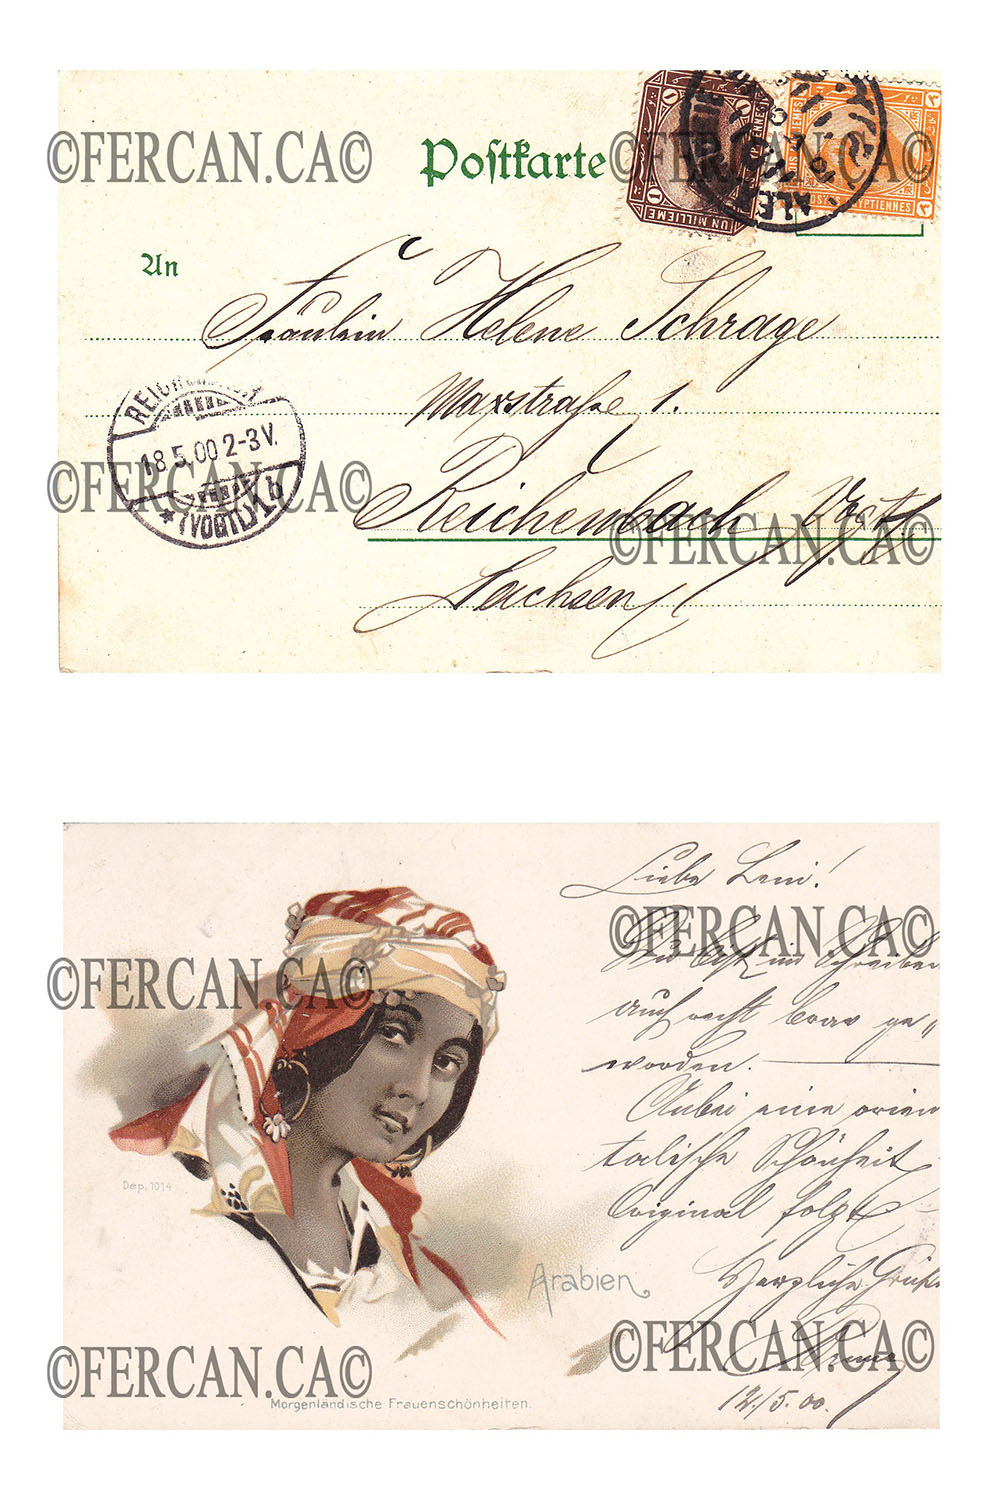 ©FERCAN.CA©
©FERCAN.CA©
Postkarte
UN MILLIEME
ALE
An
Fräulein Helene Schrage
Maxstraße 1.
18.5.00 2-3V.
(VOGTL) 1b
©FERCAN.CA©
Reichenbach Vogtl.
©FERCAN.CA©
Sachsen
Liebe Leni!
©FERCAN.CA©
Du bist im Schreiben
©FERCAN.CA©
auch recht brav ge„
worden.
Anbei eine orien
talische Schönheit
Original folgt
Dep. 1014
Herzliche Grüße
Arabien
©FERCAN.CA©
©FERCAN.CA©
Morgenländische Frauenschönheiten.
12./5.00.